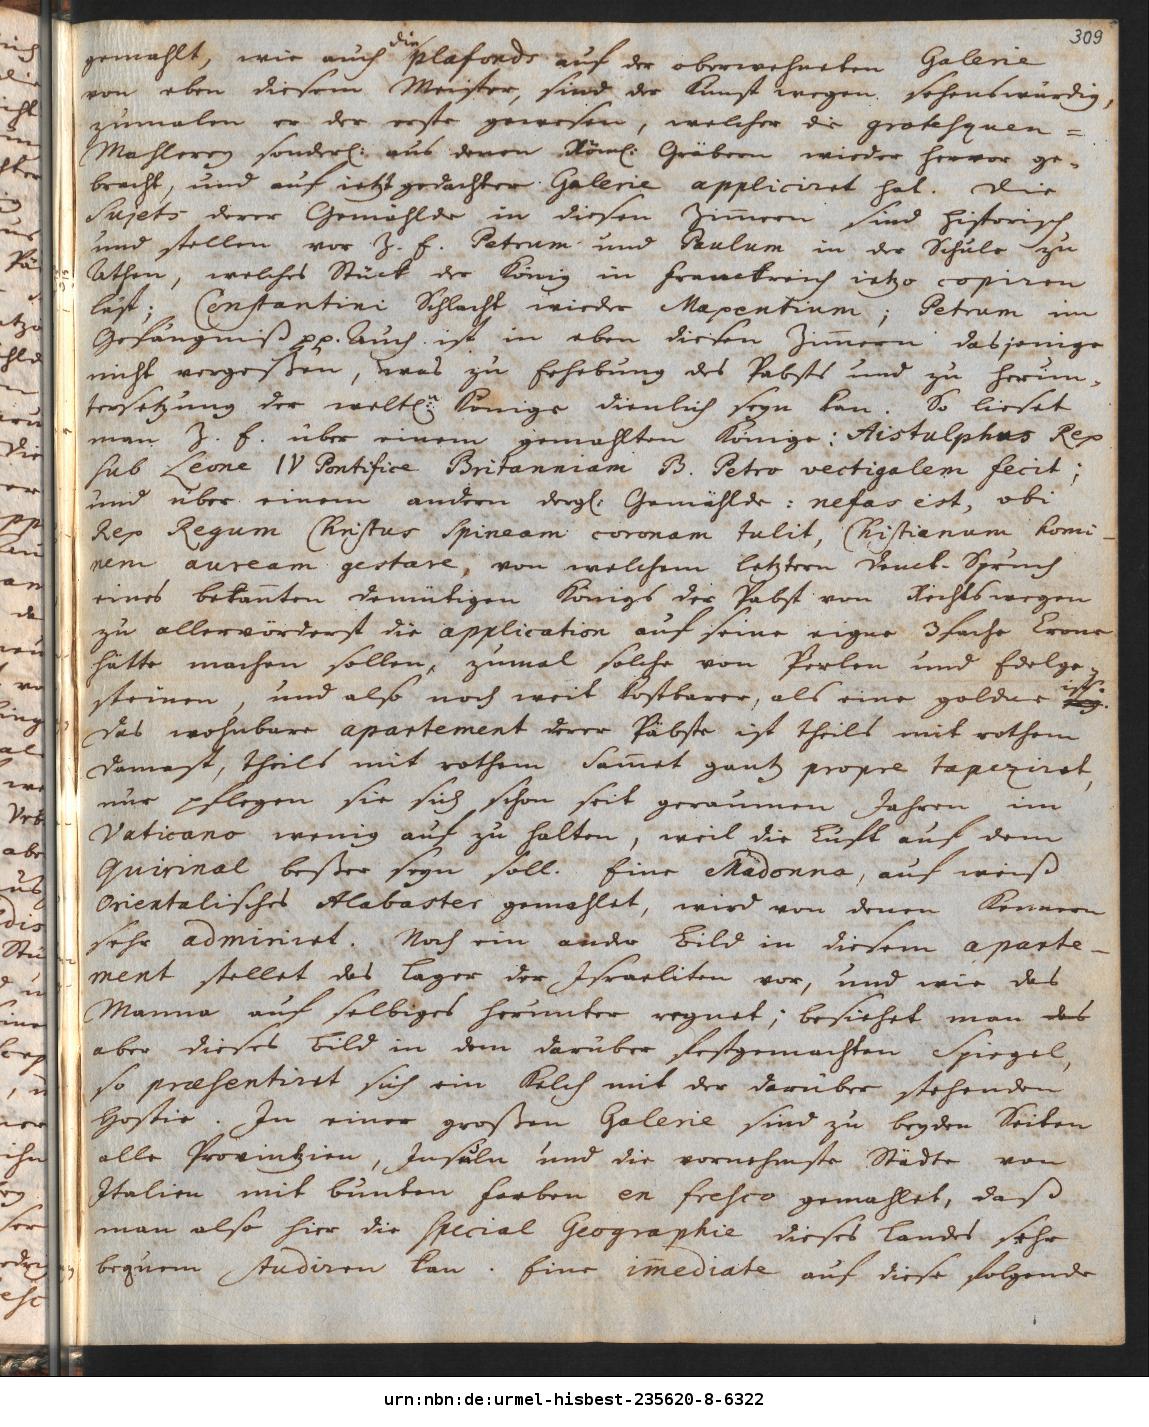 309
gemahlt, wie auch die plafonds auf der oberwehneten Galerie
von eben diesem Meister, sind der Kunst wegen sehenswürdig,
zumalen er der erste gewesen, welcher die grotesquen =
Mahlerey sonderl: aus denen Röml: Gräbern wieder hervor ge-
bracht, und auf ietzt gedachter Galerie appliciret hat. Die
Sujets derer Gemählde in diesen Zim̄ern sind historisch
und stellen vor Z. E. Petrum und Paulum in der Schule zu
Athen, welches Stück der König in Franckreich ietzo copiren
läst; Constantini Schlacht wieder Maxentium; Petrum im
Gefängniß pp. Auch ist in eben diesen Zim̄ern dasjenige
nicht vergeßen, was zu Erhebung des Pabsts und zu Herun-
tersetzung der weltl: Könige dienlich seyn kan. So lieset
man Z. E. über einem gemahlten Könige: Aistulphus Rex
sub Leone IV Pontifice Britanniam B. Petro vectigalem fecit;
und über einem andern dergl: Gemählde: nefas est, obi
Rex Regum Christus spineam coronam tulit, Christianum homi-
nem auream gestare, von welchem letztern Denck-Spruch
eines bekan̄ten demütigen Königs der Pabst von Rechtswegen
zu allervörderst die application auf seine eigne 3fache Crone
hätte machen sollen, zumal solche von Perlen und Edelge-
steinen, und also noch weit kostbarer, als eine goldne ist.
Das wohnbare apartement derer Päbste ist theils mit rothem
Damast, theils mit rothem Sam̄et gantz propre tapeziret,
nur pflegen sie sich schon seit geraumen Jahren im
Vaticano wenig auf zu halten, weil die Luft auf dem
Quirinal beßer seyn soll. Eine Madonna, auf weiß
Orientalisches Alabaster gemahlet, wird von denen Kennern
sehr admiriret. Noch ein ander Bild in diesem aparte-
ment stellet das Lager der Israeliten vor, und wie das
Manna auf selbiges herunter regnet; besiehet man das
aber dieses Bild in dem darüber festgemachten Spiegel,
so præsentiret sich ein Kelch mit der darüber stehenden
Hostie. In einer großen Galerie sind zu beyden Seiten
alle Provintzien, Insuln und die vornehmste Städte von
Italien mit bunten Farben en fresco gemahlet, daß
man also hier die special Geographie dieses Landes sehr
bequem studiren kan. Eine im̄ediate auf diese folgende
urn:nbn:de:urmel-hisbest-235620-8-6322